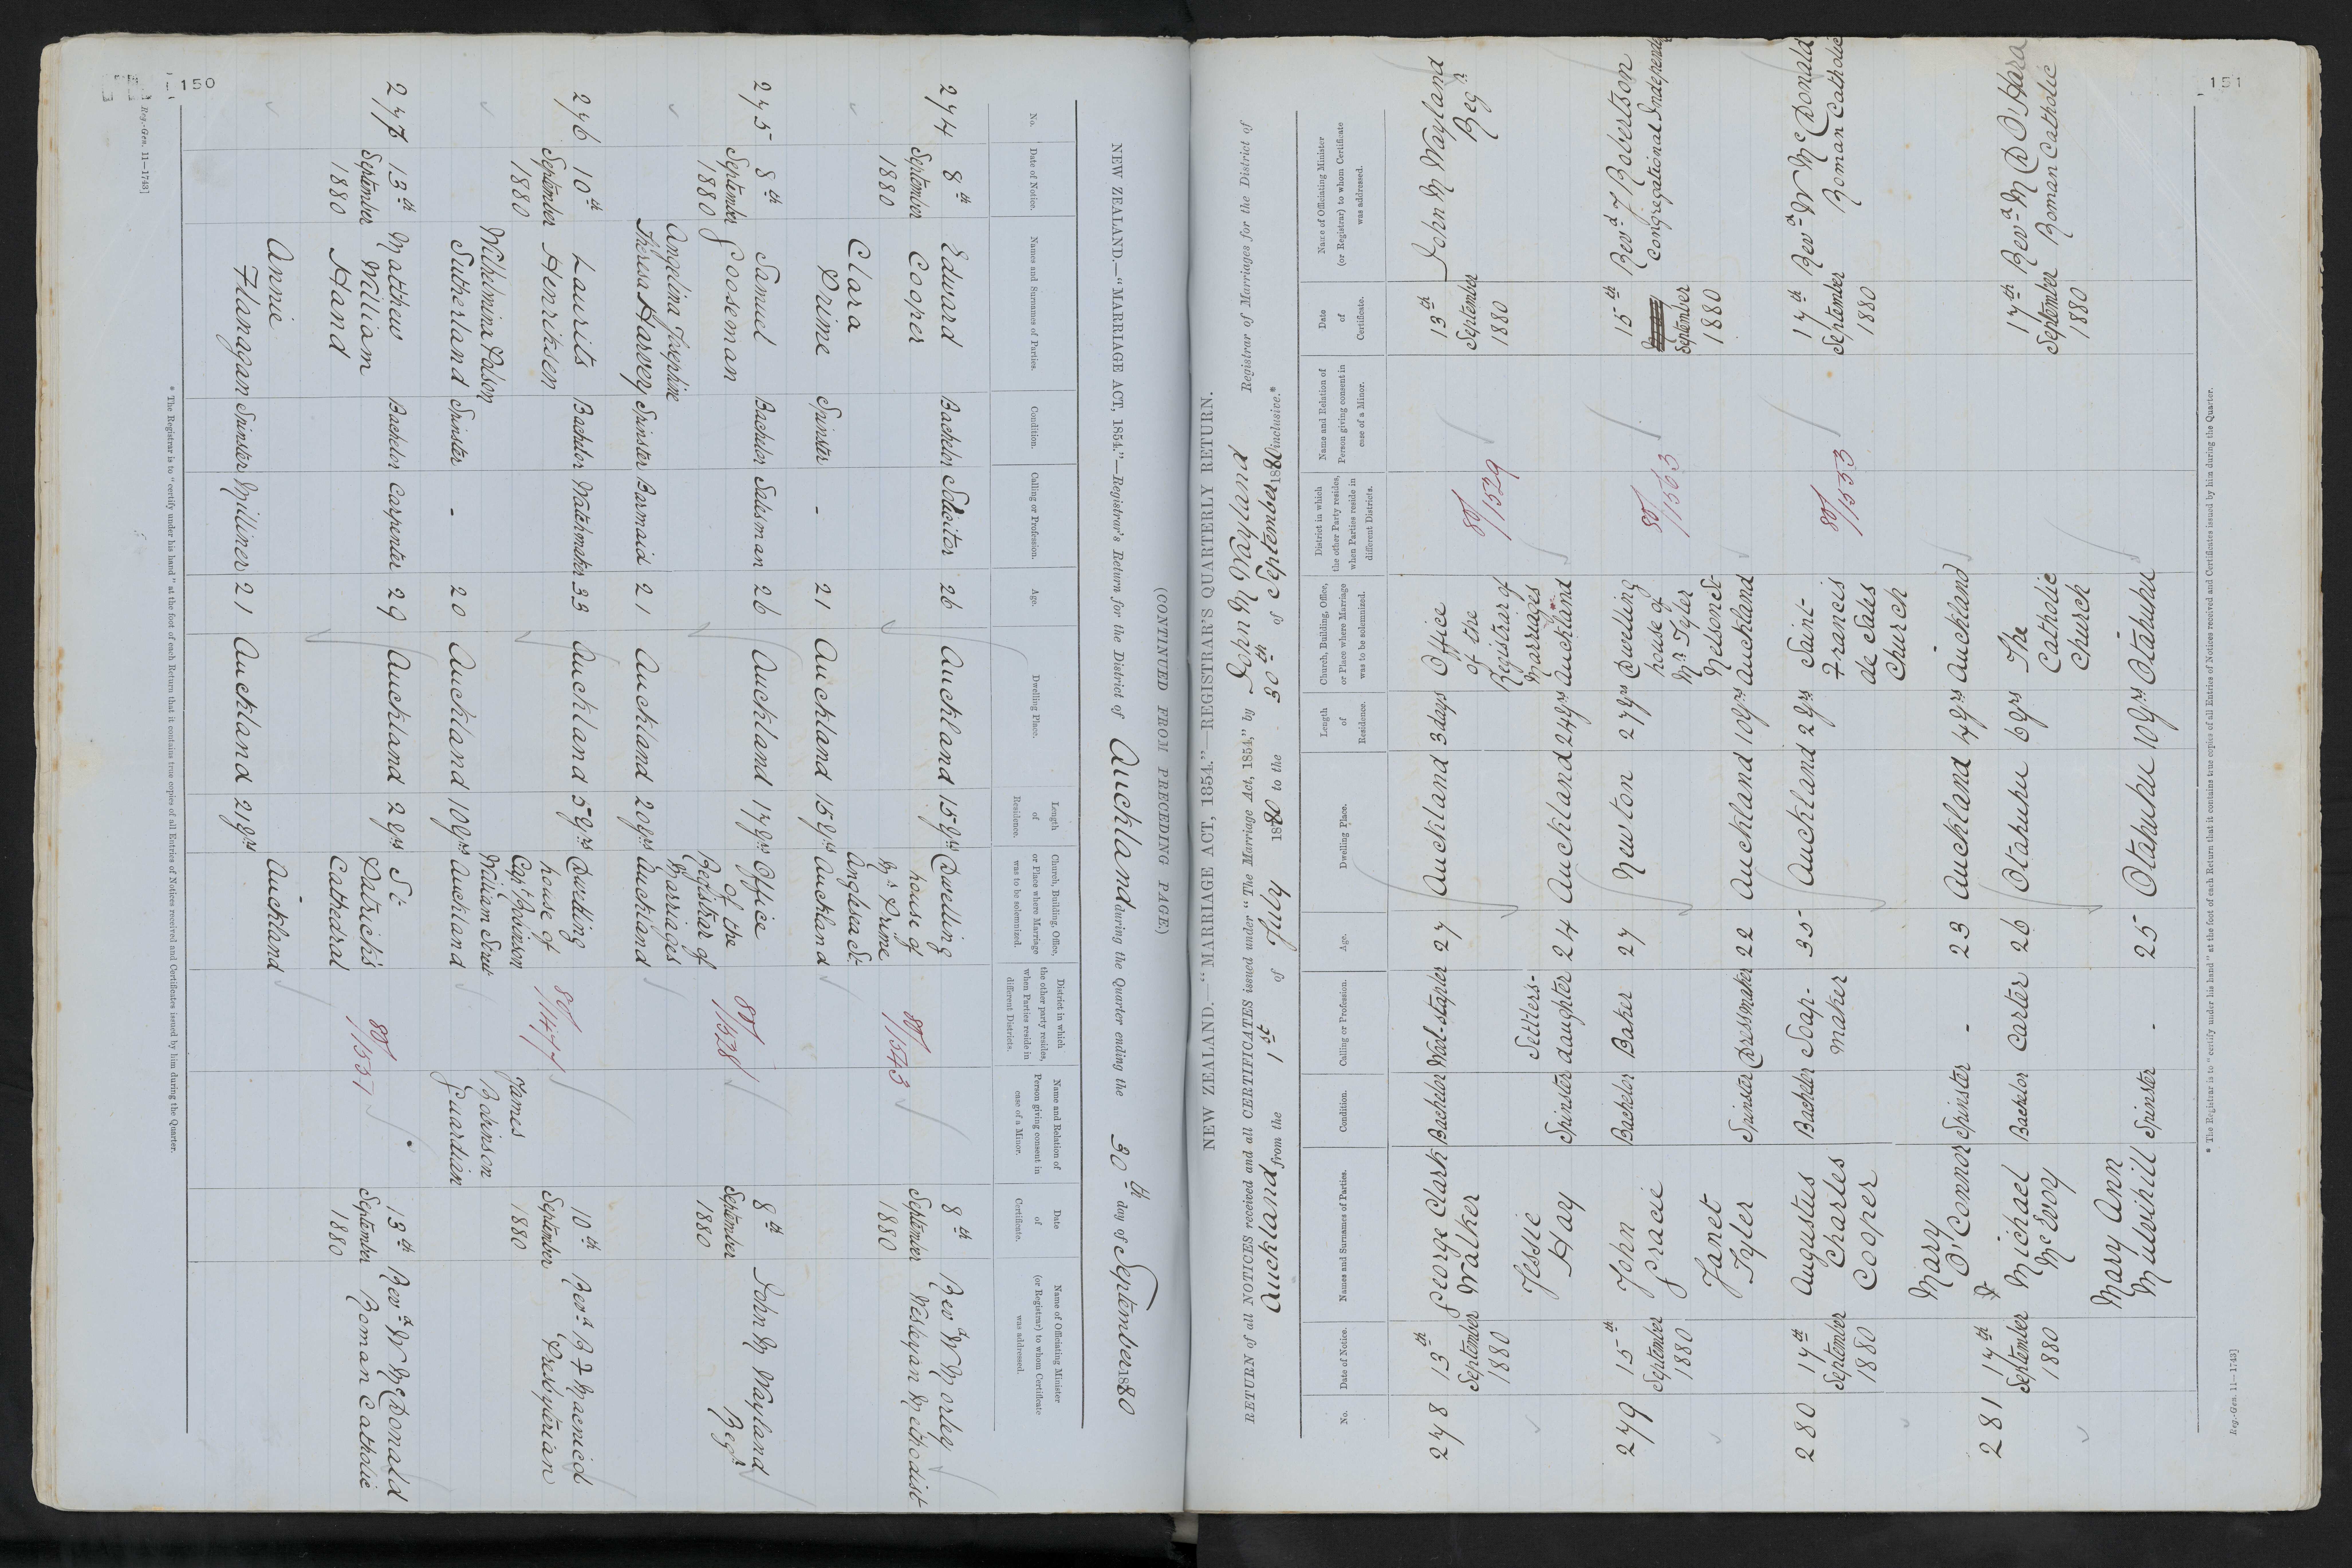 150
(CONTINUED FROM PRECEDING PAGE.)
NEW ZEALAND.—"MARRIAGE ACT, 1854."—Registrar's Return for the District of Auckland during the Quarter ending the 30th day of September 1880
No. Date of Notice. Names and Surnames of Parties. Condition. Calling or Profession. Age. Dwelling Place. Length of Residence. Church, Building, Office, or Place where Marriage was to be solemnized. District in which the other party resides, when Parties reside in different Districts. Name and Relation of Person giving consent in case of a Minor. Date of Certificate. Name of Officiating Minister (or Registrar) to whom Certificate was addressed.
274 8th Edward Bachelor Solicitor 26 Auckland 15 yrs Dwelling 8th Revd W Morley
September Cooper house of 80/1543 September Wesleyan Methodist
1880 Mrs Prime 1880
Clara Anglesea St.
Prime Spinster - 21 Auckland 15 yrs Auckland
275 8th Samuel Bachelor Salesman 26 Auckland 17 yrs Office 8th John M Wayland
September Gooseman of the 80/1528 September Regr
1880 Registrar of 1880
Angelina Josephine Marriages
Theresa Harvey Spinster Barmaid 21 Auckland 20 yrs Auckland
276 10th Laurits Bachelor Watchmaker 33 Auckland 5 yrs Dwelling 10th Revd B F Macnicol
September Henriksen house of 80/1477 September Presbyterian
1880 Capt Robinson James 1880
Wilhelmina William Street Robinson
Sutherland Spinster - 20 Auckland 10 yrs Auckland Guardian
277 13th Matthew Bachelor Carpenter 29 Auckland 2 yrs St. 13th Revd W McDonald
September William Patrick's 80/1537 September Roman Catholic
1880 Hand Cathedral 1880
Annie Auckland
Flanagan Spinster Milliner 21 Auckland 21 yrs
* The Registrar is to "certify under his hand" at the foot of each Return that it contains true copies of all Entries of Notices received and Certificates issued by him during the Quarter.
Reg.-Gen. 11—1743]
151
NEW ZEALAND.—"MARRIAGE ACT, 1854."—REGISTRAR'S QUARTERLY RETURN.
RETURN of all NOTICES received and all CERTIFICATES issued under "The Marriage Act, 1854," by John M Wayland Registrar of Marriages for the District of
Auckland from the 1st of July 1880 to the 30th of September 1880 inclusive.*
No. Date of Notice. Names and Surnames of Parties. Condition. Calling or Profession. Age. Dwelling Place. Length of Residence. Church, Building, Office, or Place where Marriage was to be solemnized. District in which the other Party resides, when Parties reside in different Districts. Name and Relation of Person giving consent in case of a Minor. Date of Certificate. Name of Officiating Minister (or Registrar) to whom Certificate was addressed.
278 13th George Clark Bachelor Wool-stapler 27 Auckland 3 days Office 13th John M Wayland
September Walker of the 80/1529 September Regr
1880 Registrar of 1880
Jessie Settlers- Marriages
Hay Spinster daughter 24 Auckland 24 yrs Auckland
279 15th John Bachelor Baker 27 Newton 27 yrs Dwelling 15th Revd J Robertson
September Gracie house of 80/1563 September Congregational Independent
1880 Mr Tyler 1880
Janet Nelson St.
Tyler Spinster Dressmaker 22 Auckland 10 yrs Auckland
280 17th Augustus Bachelor Soap- 35 Auckland 2 yrs Saint- 17th Revd W McDonald
September Charles maker Francis 80/1553 September Roman Catholic
1880 Cooper de Sales 1880
Mary Church
O'Connor Spinster - 23 Auckland 4 yrs Auckland
281 17th Michael Bachelor Carter 26 Otahuhu 6 yrs The 17th Revd M D O'Hara
September McEvoy Catholic September Roman Catholic
1880 Church 1880
Mary Ann
Mulvihill Spinster - 25 Otahuhu 10 yrs Otahuhu
* The Registrar is to "certify under his hand" at the foot of each Return that it contains true copies of all Entries of Notices received and Certificates issued by him during the Quarter.
Reg.-Gen. 11—1743]